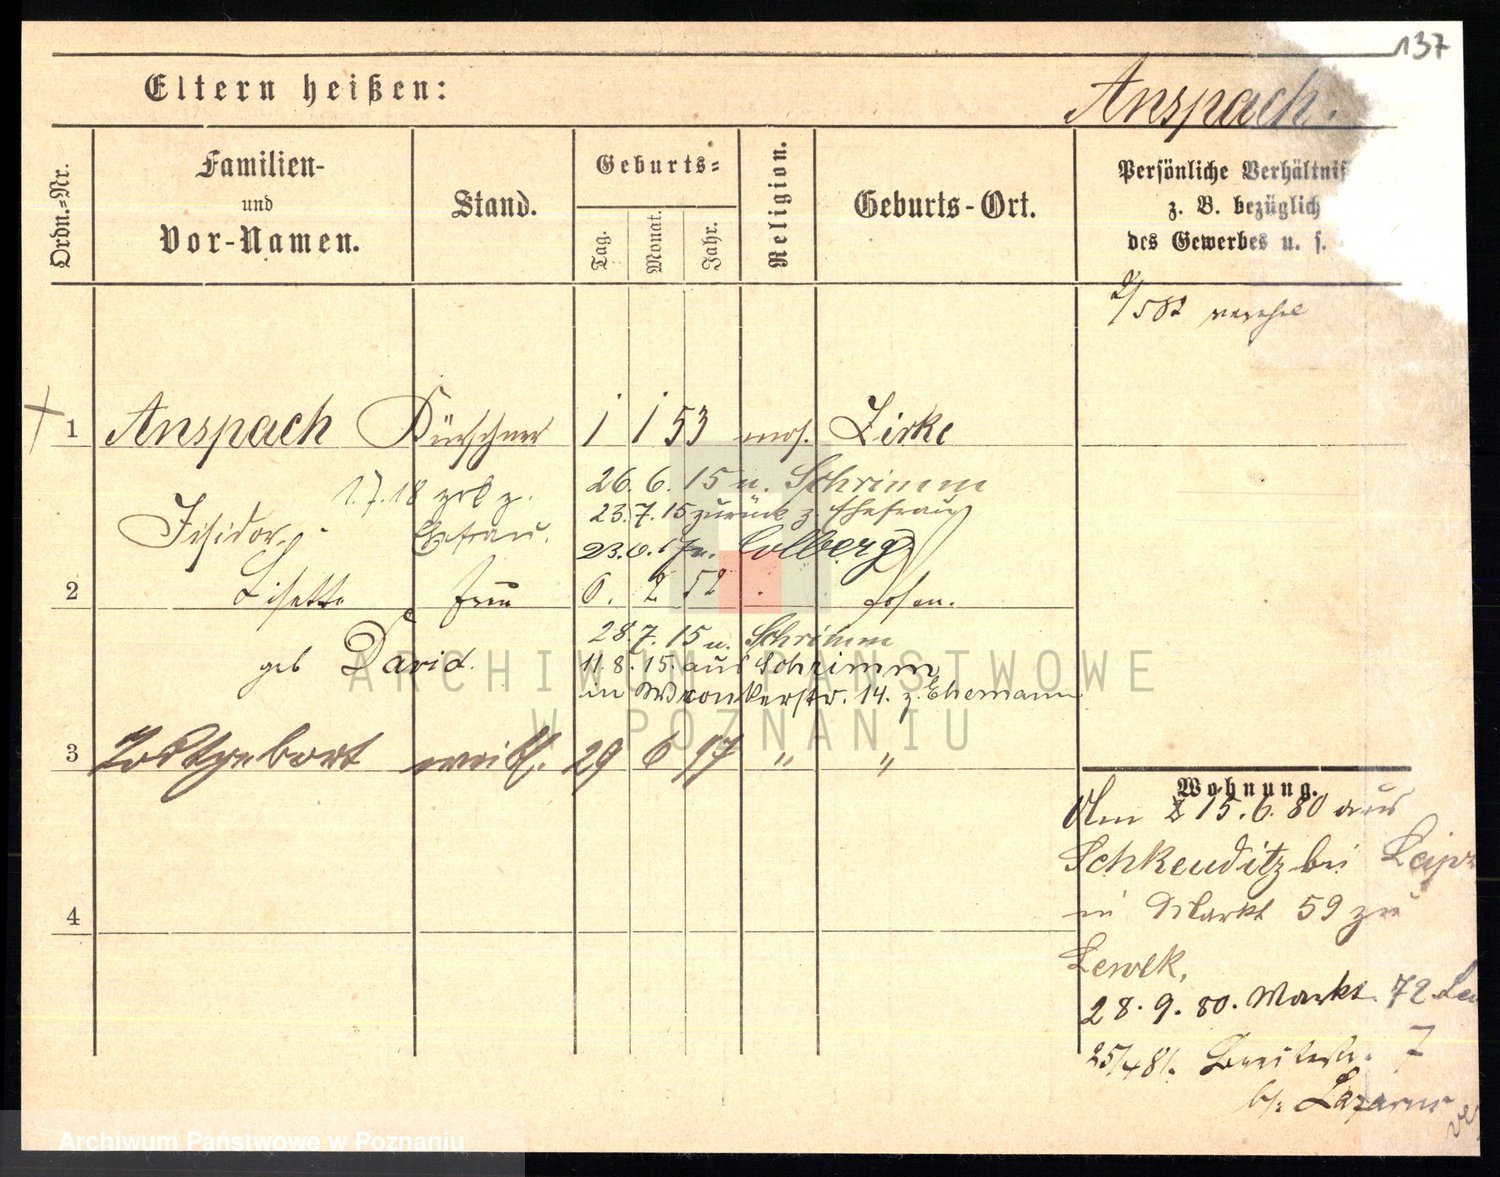 137
Eltern heißen:
Anspach.
Ordn.-Nr.
Familien-
und
Vor-Namen.
Stand.
Geburts-
Tag.
Monat.
Jahr.
Religion.
Geburts-Ort.
Persönliche Verhältnis
z. B. bezüglich
des Gewerbes u. s.
2/5 82 verehel
1 Anspach Kürschner 1 1 53 mos. Zirke
26. 6. 15 n. Schrimm
1.7.18 z.
23.7.15 zurück z. Ehefrau
Isidor. Ehefrau.
23.6.17 n. Colberg
2 Lisette Frau 6. 2 52 Posen.
28.7.15 n. Schrimm
geb David.
11.8.15. aus Schrimm
in Wronkerstr. 14. z. Ehemann
3 Todtgeburt weibl. 29 6 97 " "
Wohnung.
Am 15.6.80 aus
Schkeuditz bei Leipz
in Markt 59 zu
Lewek,
28.9.80. Markt 72
25/4 81. Breitestr. 7
b/. Lazarus
4
ARCHIWUM PAŃSTWOWE
W POZNANIU
Archiwum Państwowe w Poznaniu